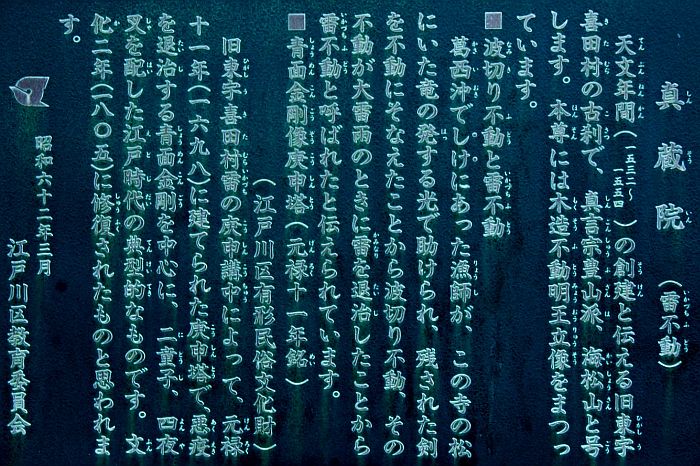 真蔵院（雷不動）
天文年間（一五三二～一五五四）の創建と伝える旧東宇
喜田村の古刹で、真言宗豊山派、海松山と号
します。本尊には木造不動明王立像をまつっ
ています。
■波切り不動と雷不動
葛西沖でしけにあった漁師が、この寺の松
にいた竜の発する光で助けられ、残された剣
を不動にそなえたことから波切り不動、その
不動が大雷雨のときに雷を退治したことから
雷不動と呼ばれたと伝えられています。
■青面金剛像庚申塔（元禄十一年銘）
（江戸川区有形民俗文化財）
旧東宇喜田村雷の庚申講中によって、元禄
十一年（一六九八）に建てられた庚申塔で、悪疫
を退治する青面金剛を中心に、二童子、四夜
叉を配した江戸時代の典型的なものです。文
化二年（一八〇五）に修復されたものと思われま
す。
昭和六十二年三月
江戸川区教育委員会